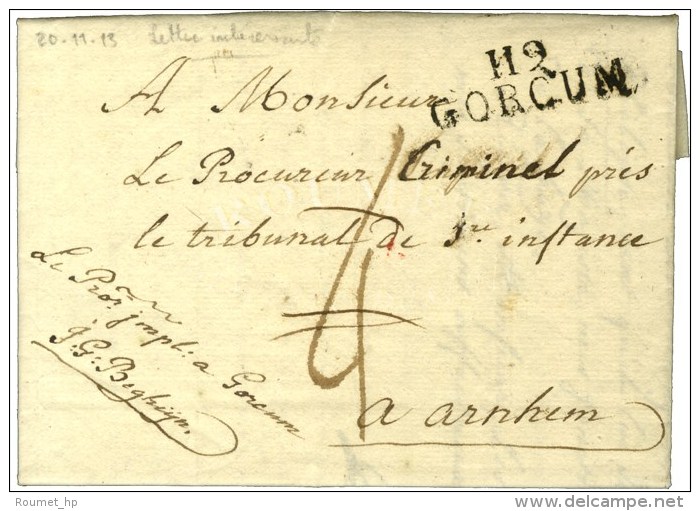 20-11-13 Lettre intéressante
119
GORCUM
A Monsieur
Le Procureur Criminel près
le tribunal de 1re instance
4
a arnhem
Le Procr. impl. a Gorcum
J. G. Beghijn.
Roumet_hp
delcampe.net